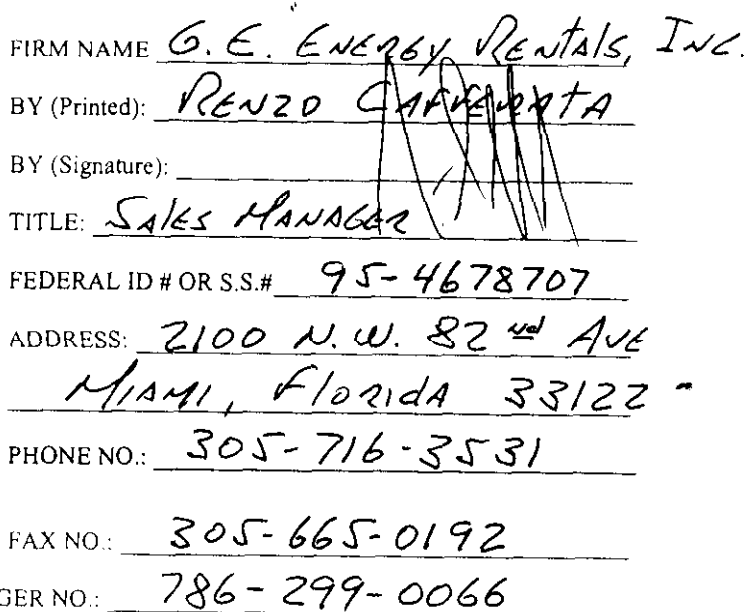 FIRM NAME G. E. ENERGY RENTALS, INC.
BY (Printed): RENZO CAFFERATA
BY (Signature):
TITLE: SALES MANAGER
FEDERAL ID # OR S.S.# 95-4678707
ADDRESS: 2100 N.W. 82nd AVE
MIAMI, FLORIDA 33122
PHONE NO.: 305-716-3531
FAX NO.: 305-665-0192
GER NO.: 786-299-0066